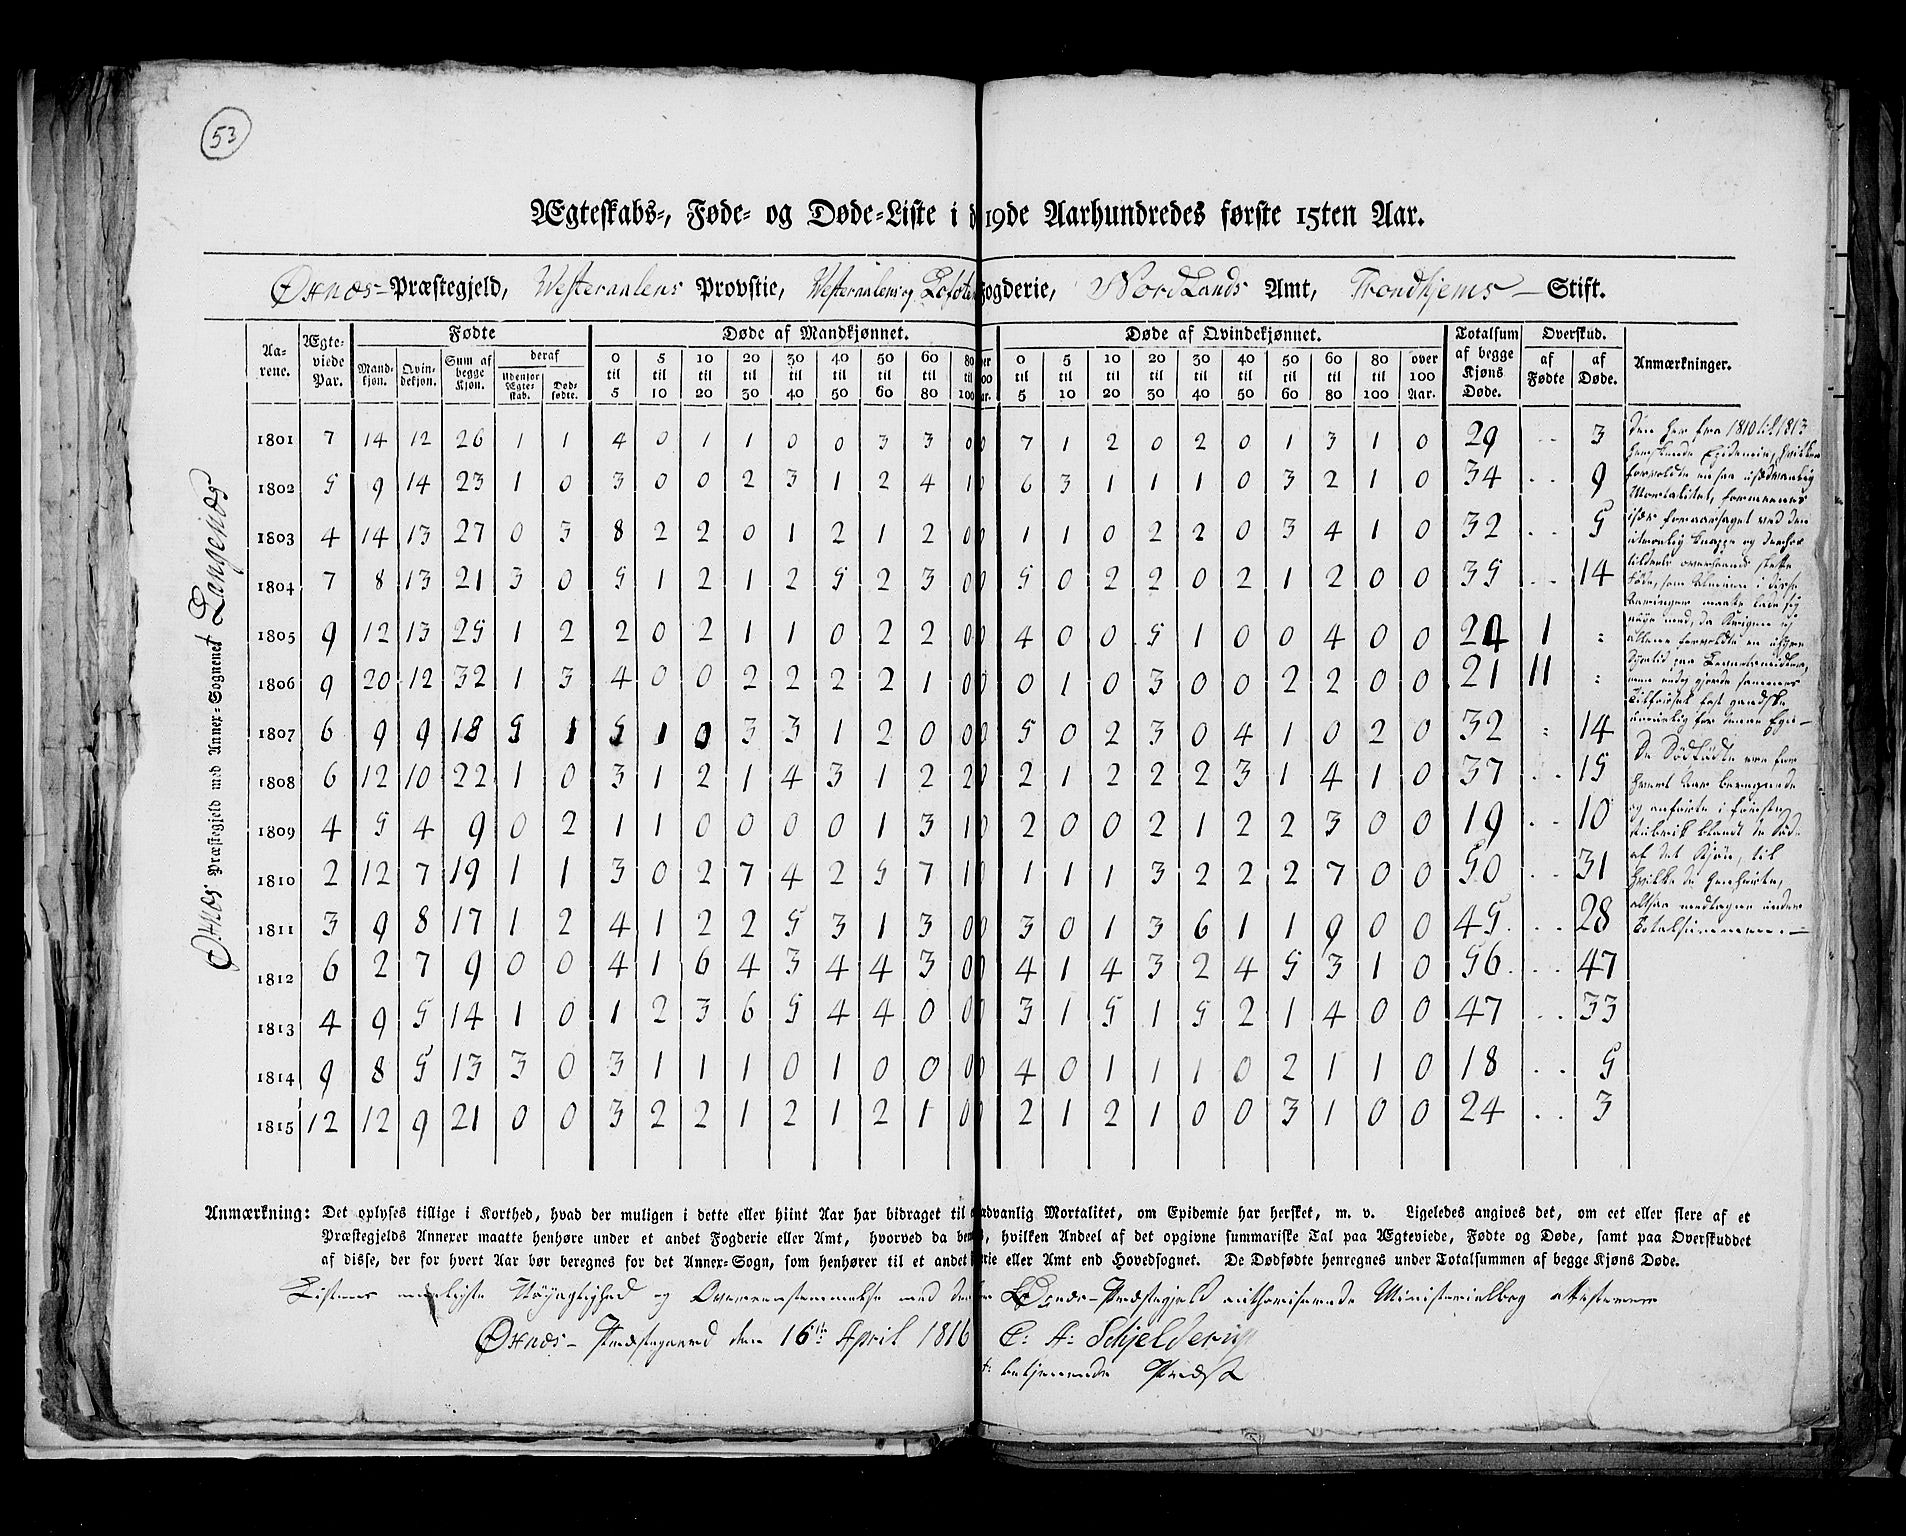 53
Ægteskabs-, Føde- og Døde-Liste i d 19de Aarhundredes første 15ten Aar.
Øxnæs Præstegjeld, Westeraalens Provstie, Westeraalens og Lofoten Fogderie, Nordlands Amt, Trondhjems Stift.
Øxnæs Præstegjeld med Annex-Sognene Langenæs
Aarene. Ægteviede Par. Fødte Døde af Mandkjønnet. Døde af Qvindekjønnet. Totalsum af begge Kjøns Døde. Overskud. Anmærkninger.
Mandkjøn. Qvindekjøn. Sum af begge Kjøn. deraf Udenfor Ægteskab. Dødfødte. 0 til 5 5 til 10 10 til 20 20 til 30 30 til 40 40 til 50 50 til 60 60 til 80 80 til 100 0 til 5 5 til 10 10 til 20 20 til 30 30 til 40 40 til 50 50 til 60 60 til 80 80 til 100 over 100 Aar. af Fødte af Døde.
1801 7 14 12 26 1 1 4 0 1 1 0 0 3 3 0 0 7 1 2 0 2 0 1 3 1 0 29 .. 3
1802 5 9 14 23 1 0 3 0 0 2 3 1 2 4 1 0 6 3 1 1 1 0 3 2 1 0 34 .. 9
1803 4 14 13 27 0 3 8 2 2 0 1 2 1 2 0 0 1 1 0 2 2 0 3 4 1 0 32 .. 5
1804 7 8 13 21 3 0 5 1 2 1 2 5 2 3 0 0 5 0 2 2 0 2 1 2 0 0 35 .. 14
1805 9 12 13 25 1 2 2 0 2 1 1 0 2 2 0 0 4 0 0 5 1 0 0 4 0 0 24 1 "
1806 9 20 12 32 1 3 4 0 0 2 2 2 2 1 0 0 0 1 0 3 0 0 2 2 0 0 21 11 "
1807 6 9 9 18 5 1 5 1 0 3 3 1 2 0 0 0 5 0 2 3 0 4 1 0 2 0 32 " 14
1808 6 12 10 22 1 0 3 1 2 1 4 3 1 2 2 0 2 1 2 2 2 3 1 4 1 0 37 .. 15
1809 4 5 4 9 0 2 1 1 0 0 0 0 1 3 1 0 2 0 0 2 1 2 2 3 0 0 19 .. 10
1810 2 12 7 19 1 1 3 0 2 7 4 2 5 7 1 0 1 1 1 3 2 2 2 7 0 0 50 .. 31
1811 3 9 8 17 1 2 4 1 2 2 5 3 1 3 0 0 3 0 1 3 6 1 1 9 0 0 45 .. 28
1812 6 2 7 9 0 0 4 1 6 4 3 4 4 3 0 0 4 1 4 3 2 4 5 3 1 0 56 .. 47
1813 4 9 5 14 1 0 1 2 3 6 5 4 4 0 0 0 3 1 5 1 5 2 1 4 0 0 47 .. 33
1814 9 8 5 13 3 0 3 1 1 1 0 1 0 0 0 0 4 0 1 1 1 0 2 1 1 0 18 .. 5
1815 12 12 9 21 0 0 3 2 2 1 2 1 2 1 0 0 2 1 2 1 0 0 3 1 0 0 24 .. 3
Den her fra 1810 til 1813
herskende Epidemie, hvilken
Mortalitet, formeenes
især foraarsaget ved den
De Dødfødte ere for
hvert Aar beregnede
og anførte i første
Rubrik blandt de Døde
af det Kjøn, til
hvilke de henhørte,
altsaa medtagne under
Totalsummen. —
Anmærkning: Det oplyses tillige i Korthed, hvad der muligen i dette eller hiint Aar har bidraget til ædvanlig Mortalitet, om Epidemie har hersket, m. v. Ligeledes angives det, om eet eller flere af et
Præstegjelds Annexer maatte henhøre under et andet Fogderie eller Amt, hvorved da bem, hvilken Andeel af det opgivne summariske Tal paa Ægteviede, Fødte og Døde, samt paa Overskuddet
af disse, der for hvert Aar bør beregnes for det Annex-Sogn, som henhører til et andet erie eller Amt end Hovedsognet. De Dødfødte henregnes under Totalsummen af begge Kjøns Døde.
Listens Nøyagtighed og Overeensstemmelse med den Øxnæs-Præstegjeld authoriserede Ministerialbog attesterer
Øxnæs-Præstegaard den 16de April 1816 C: A: Schjelderup
betjenende Præst